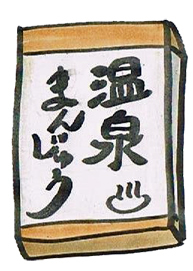 温泉
まんじゅう
♨